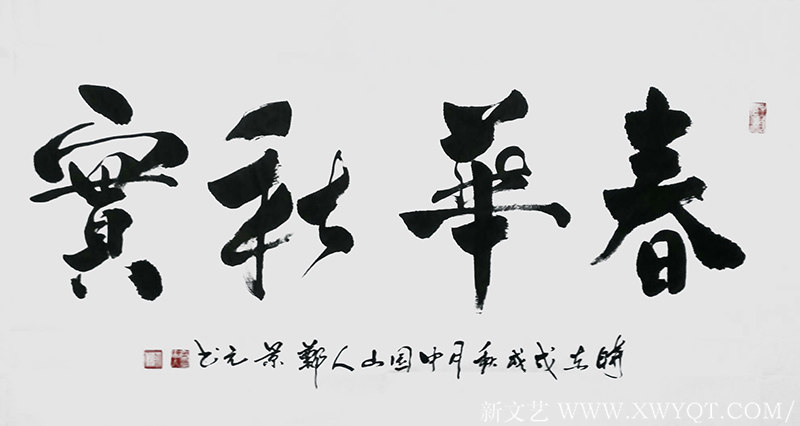 春華秋實
時在戊戌秋月中国山人鄭景元书
新文艺 WWW.XWYQT.COM/